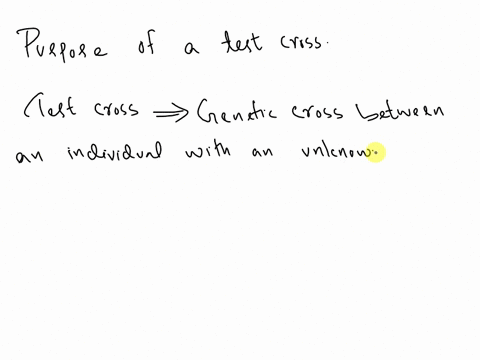 Purpose of a test cross.
Test cross ⇒ Genetic cross between
an individual with an unknow